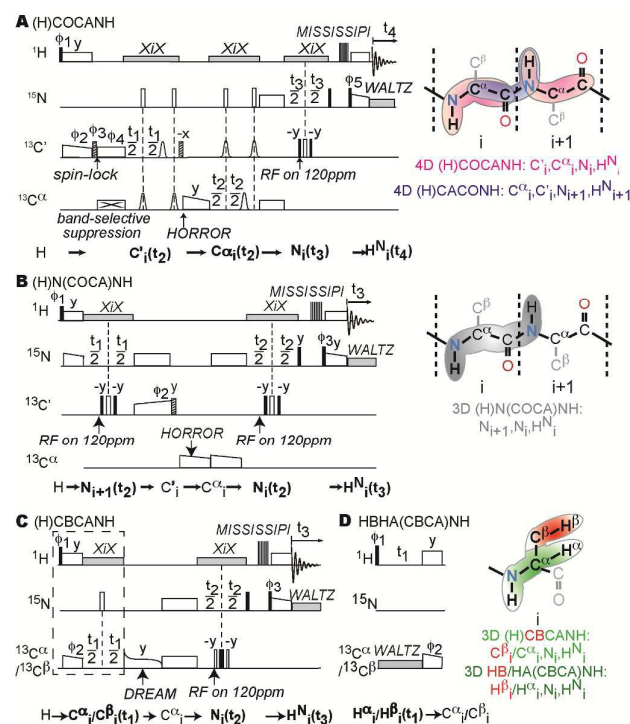 A (H)COCANH
MISSISSIPI
t4
ϕ1 y
XiX
XiX
XiX
1H
t3 t3
2 2
ϕ5 WALTZ
15N
ϕ2 ϕ3 ϕ4 t1 t1
2 2
-x
-y -y
13C'
spin-lock
RF on 120ppm
y t2 t2
2 2
13Cα
band-selective
suppression
HORROR
H → C'i(t2) → Cαi(t2) → Ni(t3) → HNi(t4)
Cβ H O
H N Cα C N Cα C
O Cβ
i i+1
4D (H)COCANH: C'i,Cαi,Ni,HNi
4D (H)CACONH: Cαi,C'i,Ni+1,HNi+1
B (H)N(COCA)NH
MISSISSIPI
t3
ϕ1 y
XiX
XiX
1H
t1 t1
2 2
t2 t2
2 2
y ϕ3y
WALTZ
15N
-y -y ϕ2 y
-y -y
13C'
RF on 120ppm
RF on 120ppm
HORROR
13Cα
H → Ni+1(t2) → C'i → Cαi → Ni(t2) → HNi(t3)
Cβ H O
H N Cα C N Cα C
O Cβ
i i+1
3D (H)N(COCA)NH:
Ni+1,Ni,HNi
C (H)CBCANH
MISSISSIPI
t3
ϕ1 y
XiX
XiX
1H
t2 t2
2 2
ϕ3
WALTZ
15N
ϕ2 t1 t1
2 2
y
-y -y
13Cα
/13Cβ
DREAM
RF on 120ppm
H → Cαi/Cβi(t1) → Cαi → Ni(t2) → HNi(t3)
D HBHA(CBCA)NH
ϕ1
t1
y
1H
15N
13Cα
/13Cβ
WALTZ
ϕ2
Hαi/Hβi(t1) → Cαi/Cβi
Cβ-Hβ
H N Cα-Hα
C O
i
3D (H)CBCANH:
Cβi/Cαi,Ni,HNi
3D HB/HA(CBCA)NH:
Hβi/Hαi,Ni,HNi